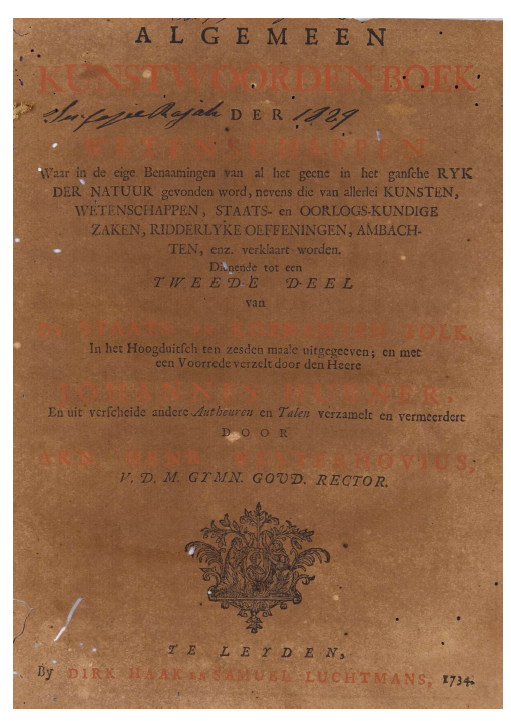 ALGEMEEN
KUNSTWOORDEN-BOEK
DER 1829
WETENSCHAPPEN
Waar in de eige Benaamingen van al het geene in het gansche RYK
DER NATUUR gevonden word, nevens die van allerlei KUNSTEN,
WETENSCHAPPEN, STAATS- en OORLOGS-KUNDIGE
ZAKEN, RIDDERLYKE OEFFENINGEN, AMBACH-
TEN, enz. verklaart worden.
Dienende tot een
TWEEDE DEEL
van
DE STAATS- en KOERANTEN TOLK,
In het Hoogduitsch ten zesden maale uitgegeeven; en met
een Voorrede verzelt door den Heere
JOHANNES HUBNER,
En uit verscheide andere Autheuren en Talen verzamelt en vermeerdert
DOOR
ARN. HENR. WESTERHOVIUS,
V. D. M. GYMN. GOUD. RECTOR.
TE LEYDEN,
By DIRK HAAK EN SAMUEL LUCHTMANS, 1734.